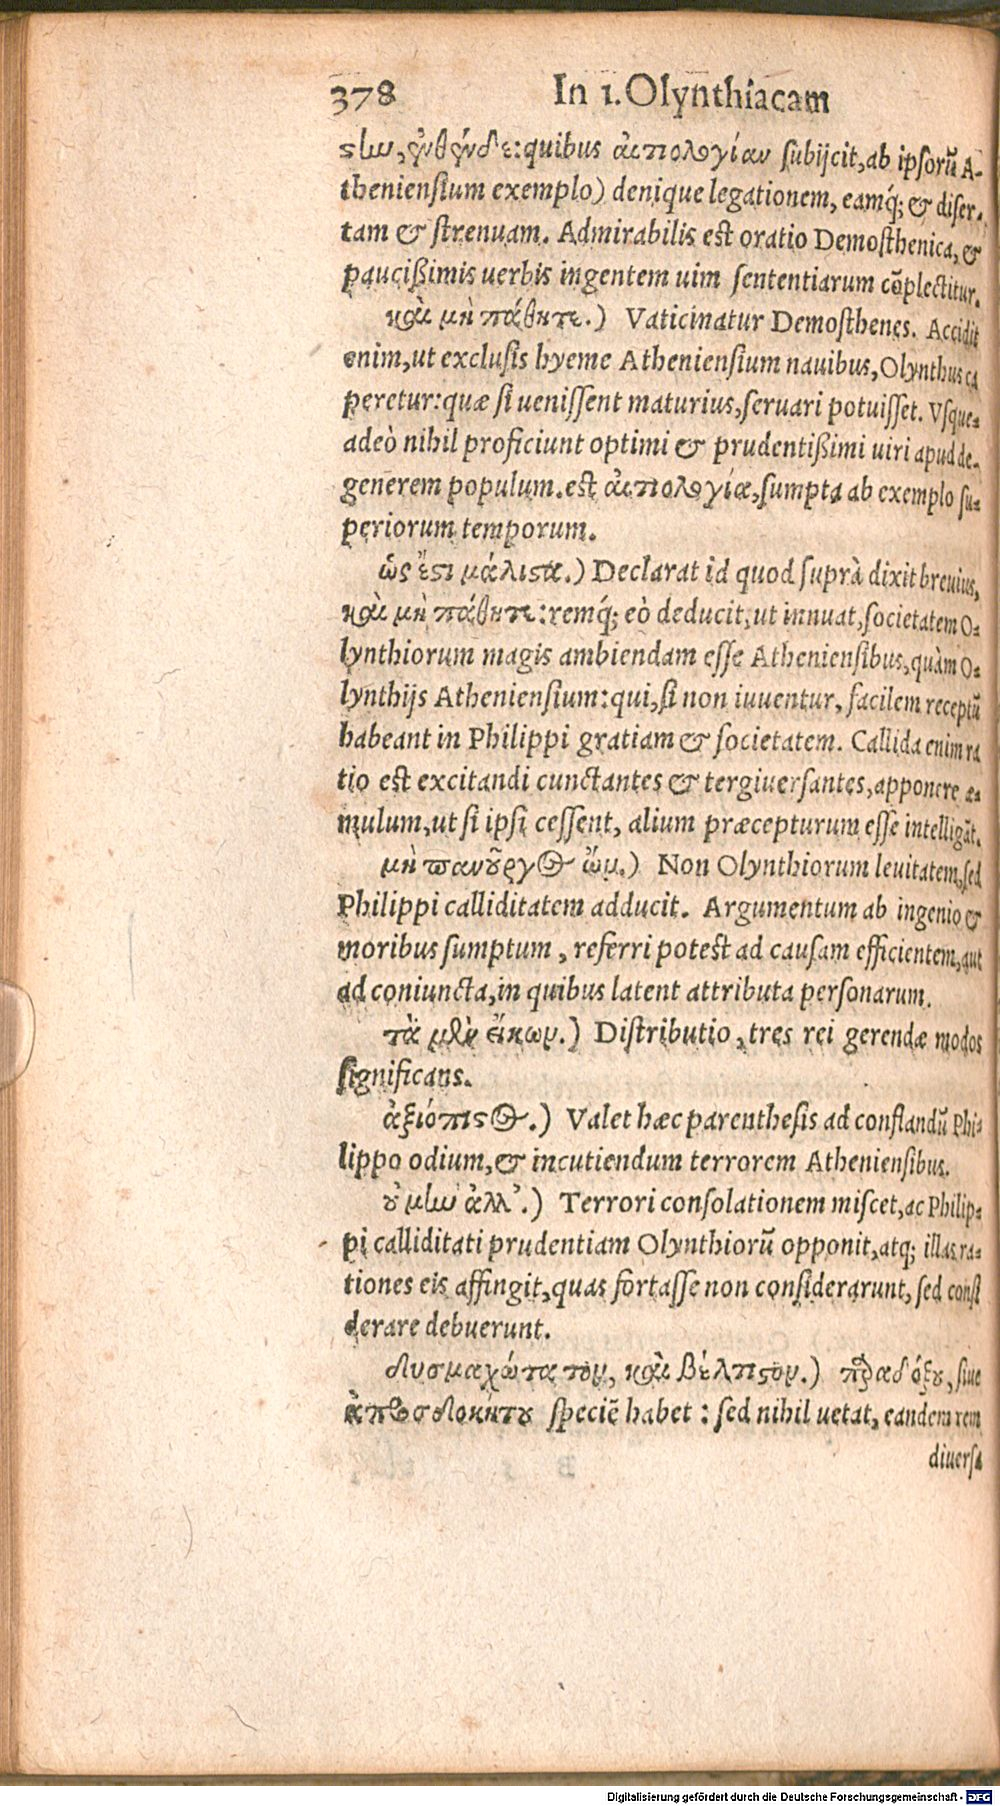 378 In 1. Olynthiacam
ϛω, ἐνθένδε: quibus αἰτιολογίαν subijcit, ab ipsorū A-
theniensium exemplo) denique legationem, eamq́; & diser-
tam & strenuam. Admirabilis est oratio Demosthenica, &
paucißimis uerbis ingentem uim sententiarum cōplectitur.
καὶ μὴ πάθητε.) Vaticinatur Demosthenes. Accidit
enim, ut exclusis hyeme Atheniensium nauibus, Olynthus ca
peretur: quæ si uenissent maturius, seruari potuisset. Vsque-
adeò nihil proficiunt optimi & prudentißimi uiri apud de-
generem populum. est αἰτιολογία, sumpta ab exemplo su-
periorum temporum.
ὡς ἔϛι μάλιϛα.) Declarat id quod suprà dixit breuius,
καὶ μὴ πάθητε: remq́; eò deducit, ut innuat, societatem O-
lynthiorum magis ambiendam esse Atheniensibus, quàm O-
lynthijs Atheniensium: qui, si non iuuentur, facilem receptū
habeant in Philippi gratiam & societatem. Callida enim ra
tio est excitandi cunctantes & tergiuersantes, apponere æ-
mulum, ut si ipsi cessent, alium præcepturum esse intelligāt.
μὴ πανοῦργος ὤν.) Non Olynthiorum leuitatem, sed
Philippi calliditatem adducit. Argumentum ab ingenio &
moribus sumptum, referri potest ad causam efficientem, aut
ad coniuncta, in quibus latent attributa personarum.
τὰ μὲν εἴκων.) Distributio, tres rei gerendæ modos
significans.
ἀξιόπιϛος.) Valet hæc parenthesis ad conflandū Phi-
lippo odium, & incutiendum terrorem Atheniensibus.
οὐ μὴν ἀλλ’.) Terrori consolationem miscet, ac Philip-
pi calliditati prudentiam Olynthiorū opponit, atq; illas ra-
tiones eis affingit, quas fortasse non considerarunt, sed consi
derare debuerunt.
δυσμαχώτατον, καὶ βέλτιϛον.) παραδόξου, siue
ἀπροσδοκήτου speciē habet: sed nihil uetat, eandem rem
diuersa
Digitalisierung gefördert durch die Deutsche Forschungsgemeinschaft - DFG